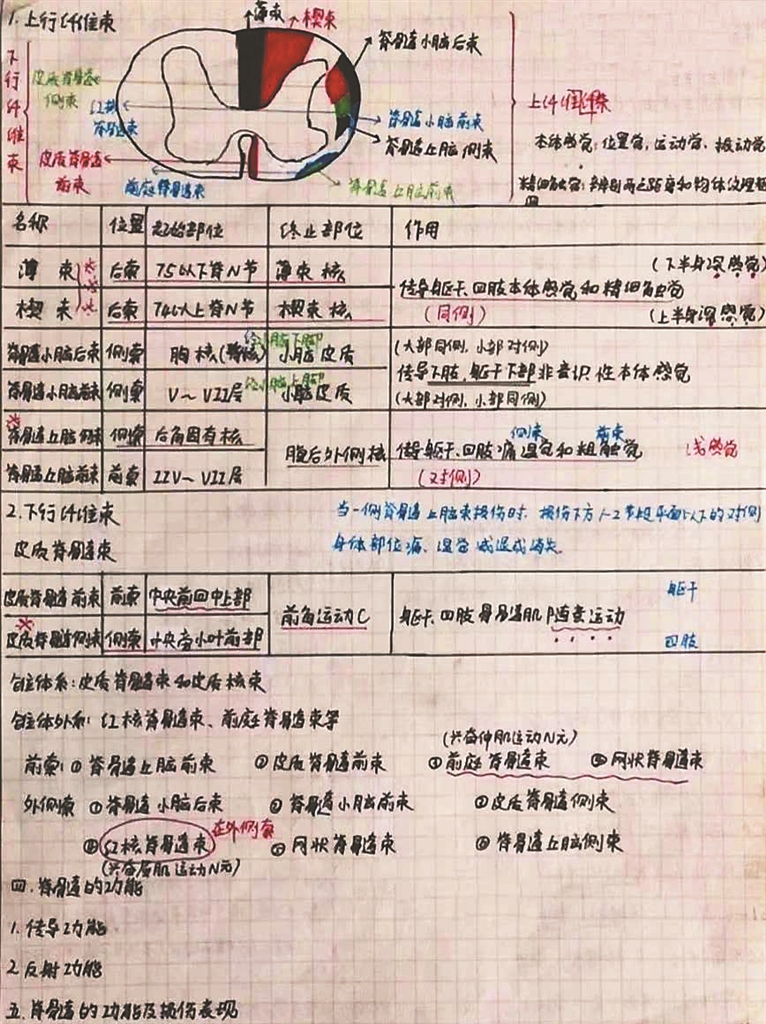 1.上行纤维束
薄束
楔束
脊髓小脑后束
下行纤维束
皮质脊髓
侧束
红核
脊髓束
脊髓小脑前束
脊髓丘脑侧束
皮质脊髓
前束
前庭脊髓束
脊髓丘脑前束
上行纤维束
本体感觉:位置觉,运动觉、振动觉
精细触觉:辨别两点距离和物体纹理
名称 位置 起始部位 终止部位 作用
薄束 后索 T5以下脊N节 薄束核 (下半身深感觉)
传导躯干、四肢本体感觉和精细触觉
楔束 后索 T4以上脊N节 楔束核 (同侧) (上半身深感觉)
脊髓小脑后束 侧索 胸核(背核) 经小脑下脚 小脑皮质 (大部同侧,小部对侧)
传导下肢、躯干下部非意识性本体感觉
脊髓小脑前束 侧索 V~VII层 经小脑上脚 小脑皮质 (大部对侧,小部同侧)
脊髓丘脑侧束 侧索 后角固有核
侧束 前束
腹后外侧核 传导躯干、四肢痛温觉和粗触觉 浅感觉
脊髓丘脑前束 前索 IIV~VII层 (对侧)
2.下行纤维束
当一侧脊髓丘脑束损伤时,损伤下方1-2节段平面以下的对侧
身体部位痛、温觉减退或消失
皮质脊髓束
皮质脊髓前束 前索 中央前回中上部 躯干
前角运动C 躯干、四肢骨骼肌随意运动
皮质脊髓侧束 侧索 中央旁小叶前部 四肢
锥体系:皮质脊髓束和皮质核束
锥体外系:红核脊髓束、前庭脊髓束等
(兴奋伸肌运动N元)
前索:①脊髓丘脑前束 ②皮质脊髓前束 ③前庭脊髓束 ④网状脊髓束
外侧索 ①脊髓小脑后束 ②脊髓小脑前束 ③皮质脊髓侧束
④红核脊髓束 在外侧索 ⑤网状脊髓束 ⑥脊髓丘脑侧束
(兴奋屈肌运动N元)
四.脊髓的功能
1.传导功能
2.反射功能
五.脊髓的功能及损伤表现